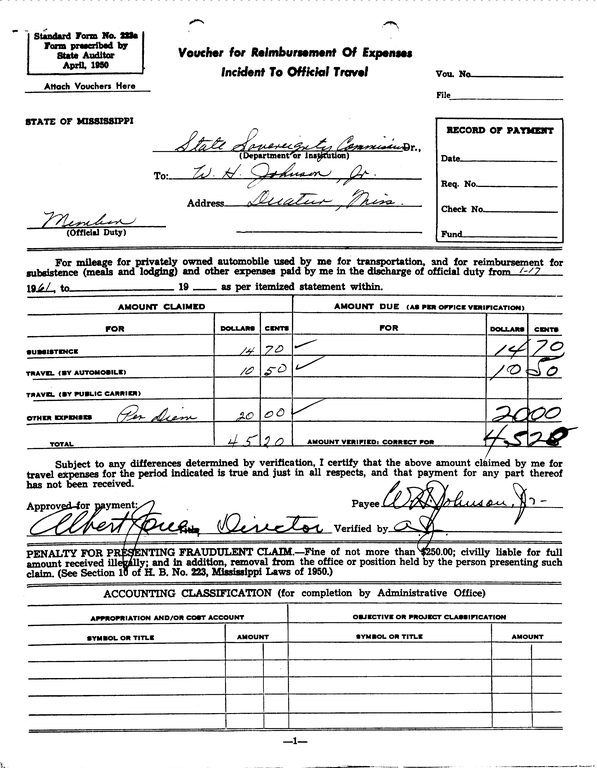 Standard Form No. 223a
Form prescribed by
State Auditor
April, 1950
Attach Vouchers Here
Voucher for Reimbursement Of Expenses
Incident To Official Travel
Vou. No.
File
STATE OF MISSISSIPPI
State Sovereignty Commission Dr.,
(Department or Institution)
To: W. H. Johnson, Jr.
Address Decatur, Miss.
Member
(Official Duty)
RECORD OF PAYMENT
Date
Req. No.
Check No.
Fund
For mileage for privately owned automobile used by me for transportation, and for reimbursement for
subsistence (meals and lodging) and other expenses paid by me in the discharge of official duty from 1-17
1961, to 19 as per itemized statement within.
AMOUNT CLAIMED AMOUNT DUE (AS PER OFFICE VERIFICATION)
FOR DOLLARS CENTS FOR DOLLARS CENTS
SUBSISTENCE 14 70 ✓ 14 70
TRAVEL (BY AUTOMOBILE) 10 50 ✓ 10 50
TRAVEL (BY PUBLIC CARRIER)
OTHER EXPENSES Per Diem 20 00 ✓ 20 00
TOTAL 45 20 AMOUNT VERIFIED: CORRECT FOR 45 20
Subject to any differences determined by verification, I certify that the above amount claimed by me for
travel expenses for the period indicated is true and just in all respects, and that payment for any part thereof
has not been received.
Approved for payment: Payee W. H. Johnson, Jr.
Albert Jones Director Verified by a.J.
PENALTY FOR PRESENTING FRAUDULENT CLAIM.—Fine of not more than $250.00; civilly liable for full
amount received illegally; and in addition, removal from the office or position held by the person presenting such
claim. (See Section 10 of H. B. No. 223, Mississippi Laws of 1950.)
ACCOUNTING CLASSIFICATION (for completion by Administrative Office)
APPROPRIATION AND/OR COST ACCOUNT OBJECTIVE OR PROJECT CLASSIFICATION
SYMBOL OR TITLE AMOUNT SYMBOL OR TITLE AMOUNT
—1—